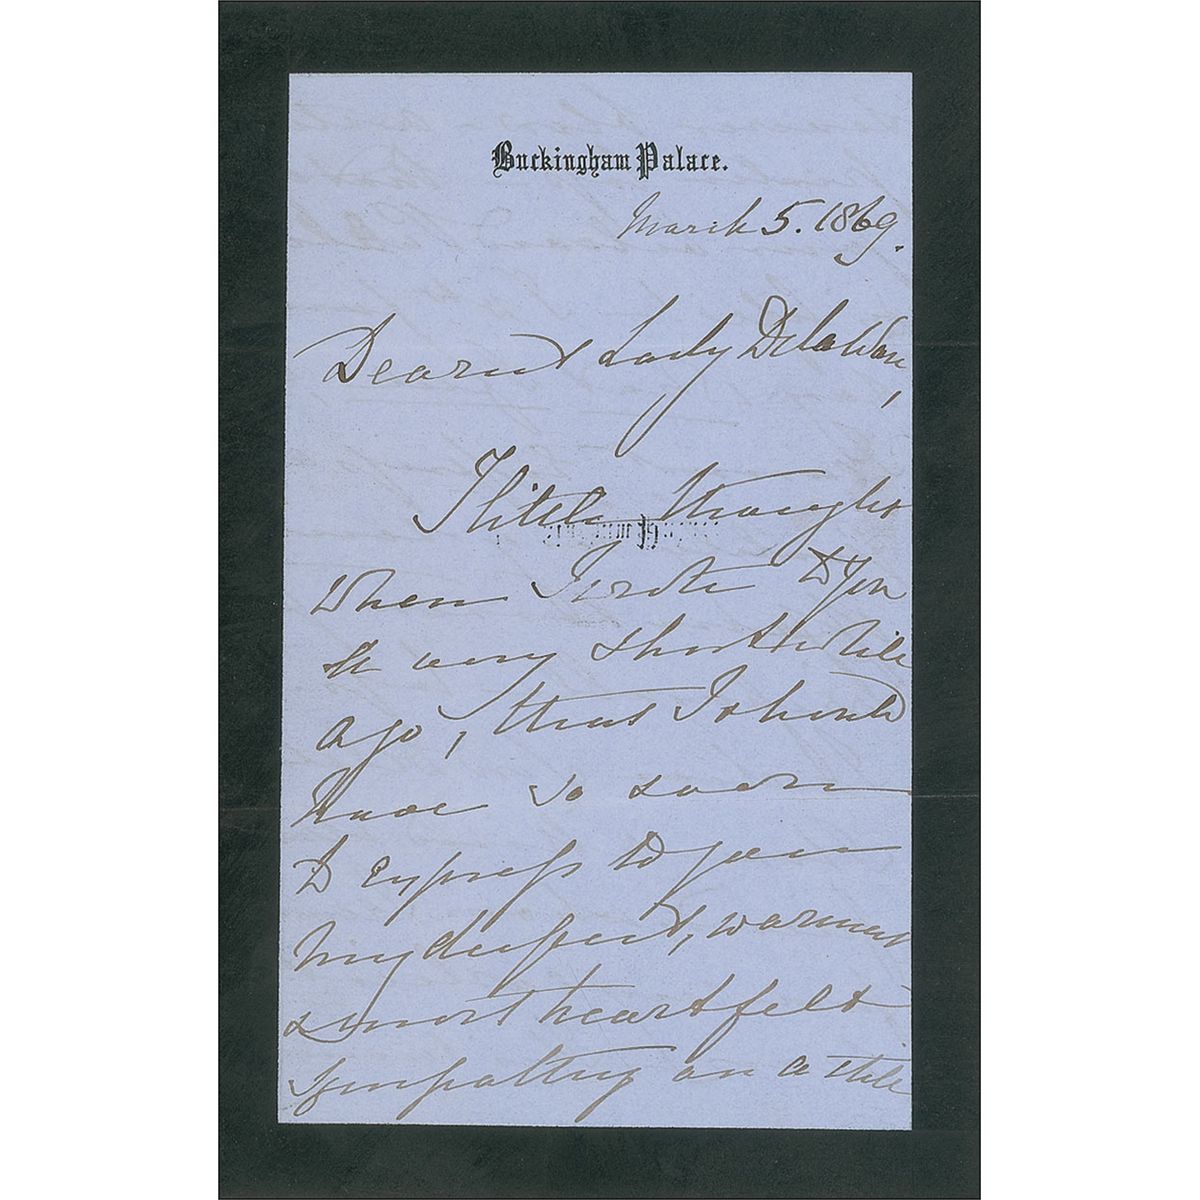 Buckingham Palace.
March 5. 1869.
Dearest Lady Delawarr,
I little thought
when I wrote to you
a very short while
ago, that I should
have so soon
to express to you
my deepest, warmest
& most heartfelt
sympathy on a still